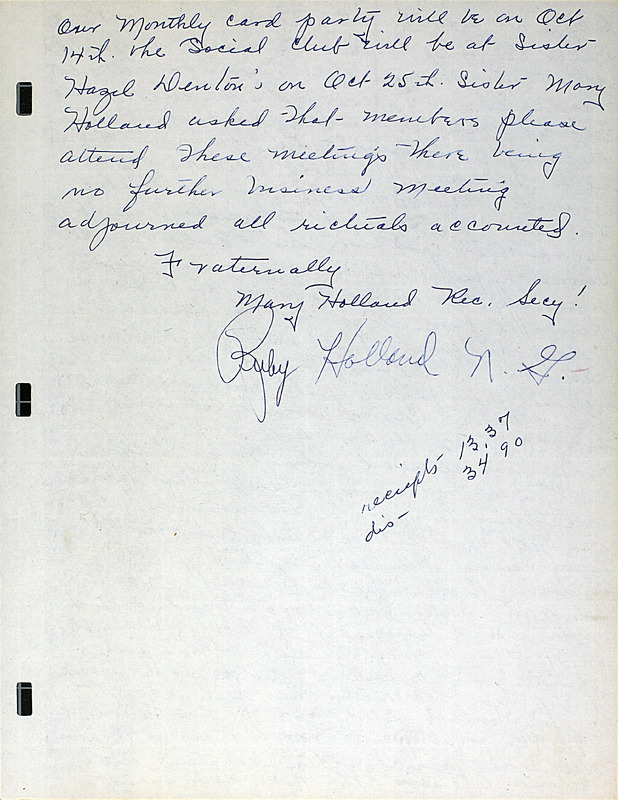 Our Monthly card party will be on Oct
14th. the Social Club will be at Sister
Hazel Denton's on Oct 25th. Sister Mary
Holland asked that members please
attend these meetings there being
no further business meeting
adjourned all richuals accounted.
Fraternally
Mary Holland Rec. Secy!
Ruby Holland N. G.
receipts 13.37
dis- 34 90